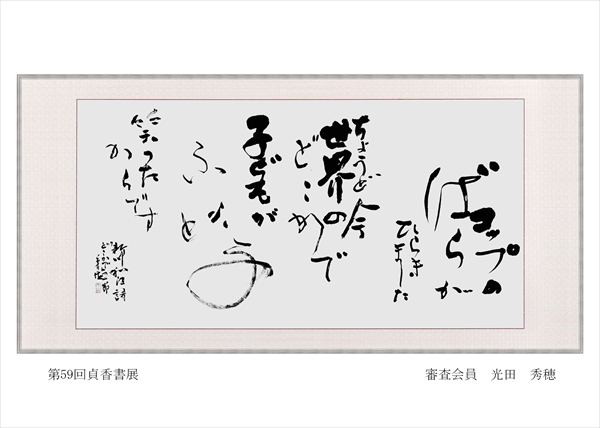 コップの
ばらが
ひらきました
ちょうど今
世界の
どこかで
子どもが
ふと
笑った
からです
新川和江詩
第59回貞香書展
審査会員 光田 秀穂